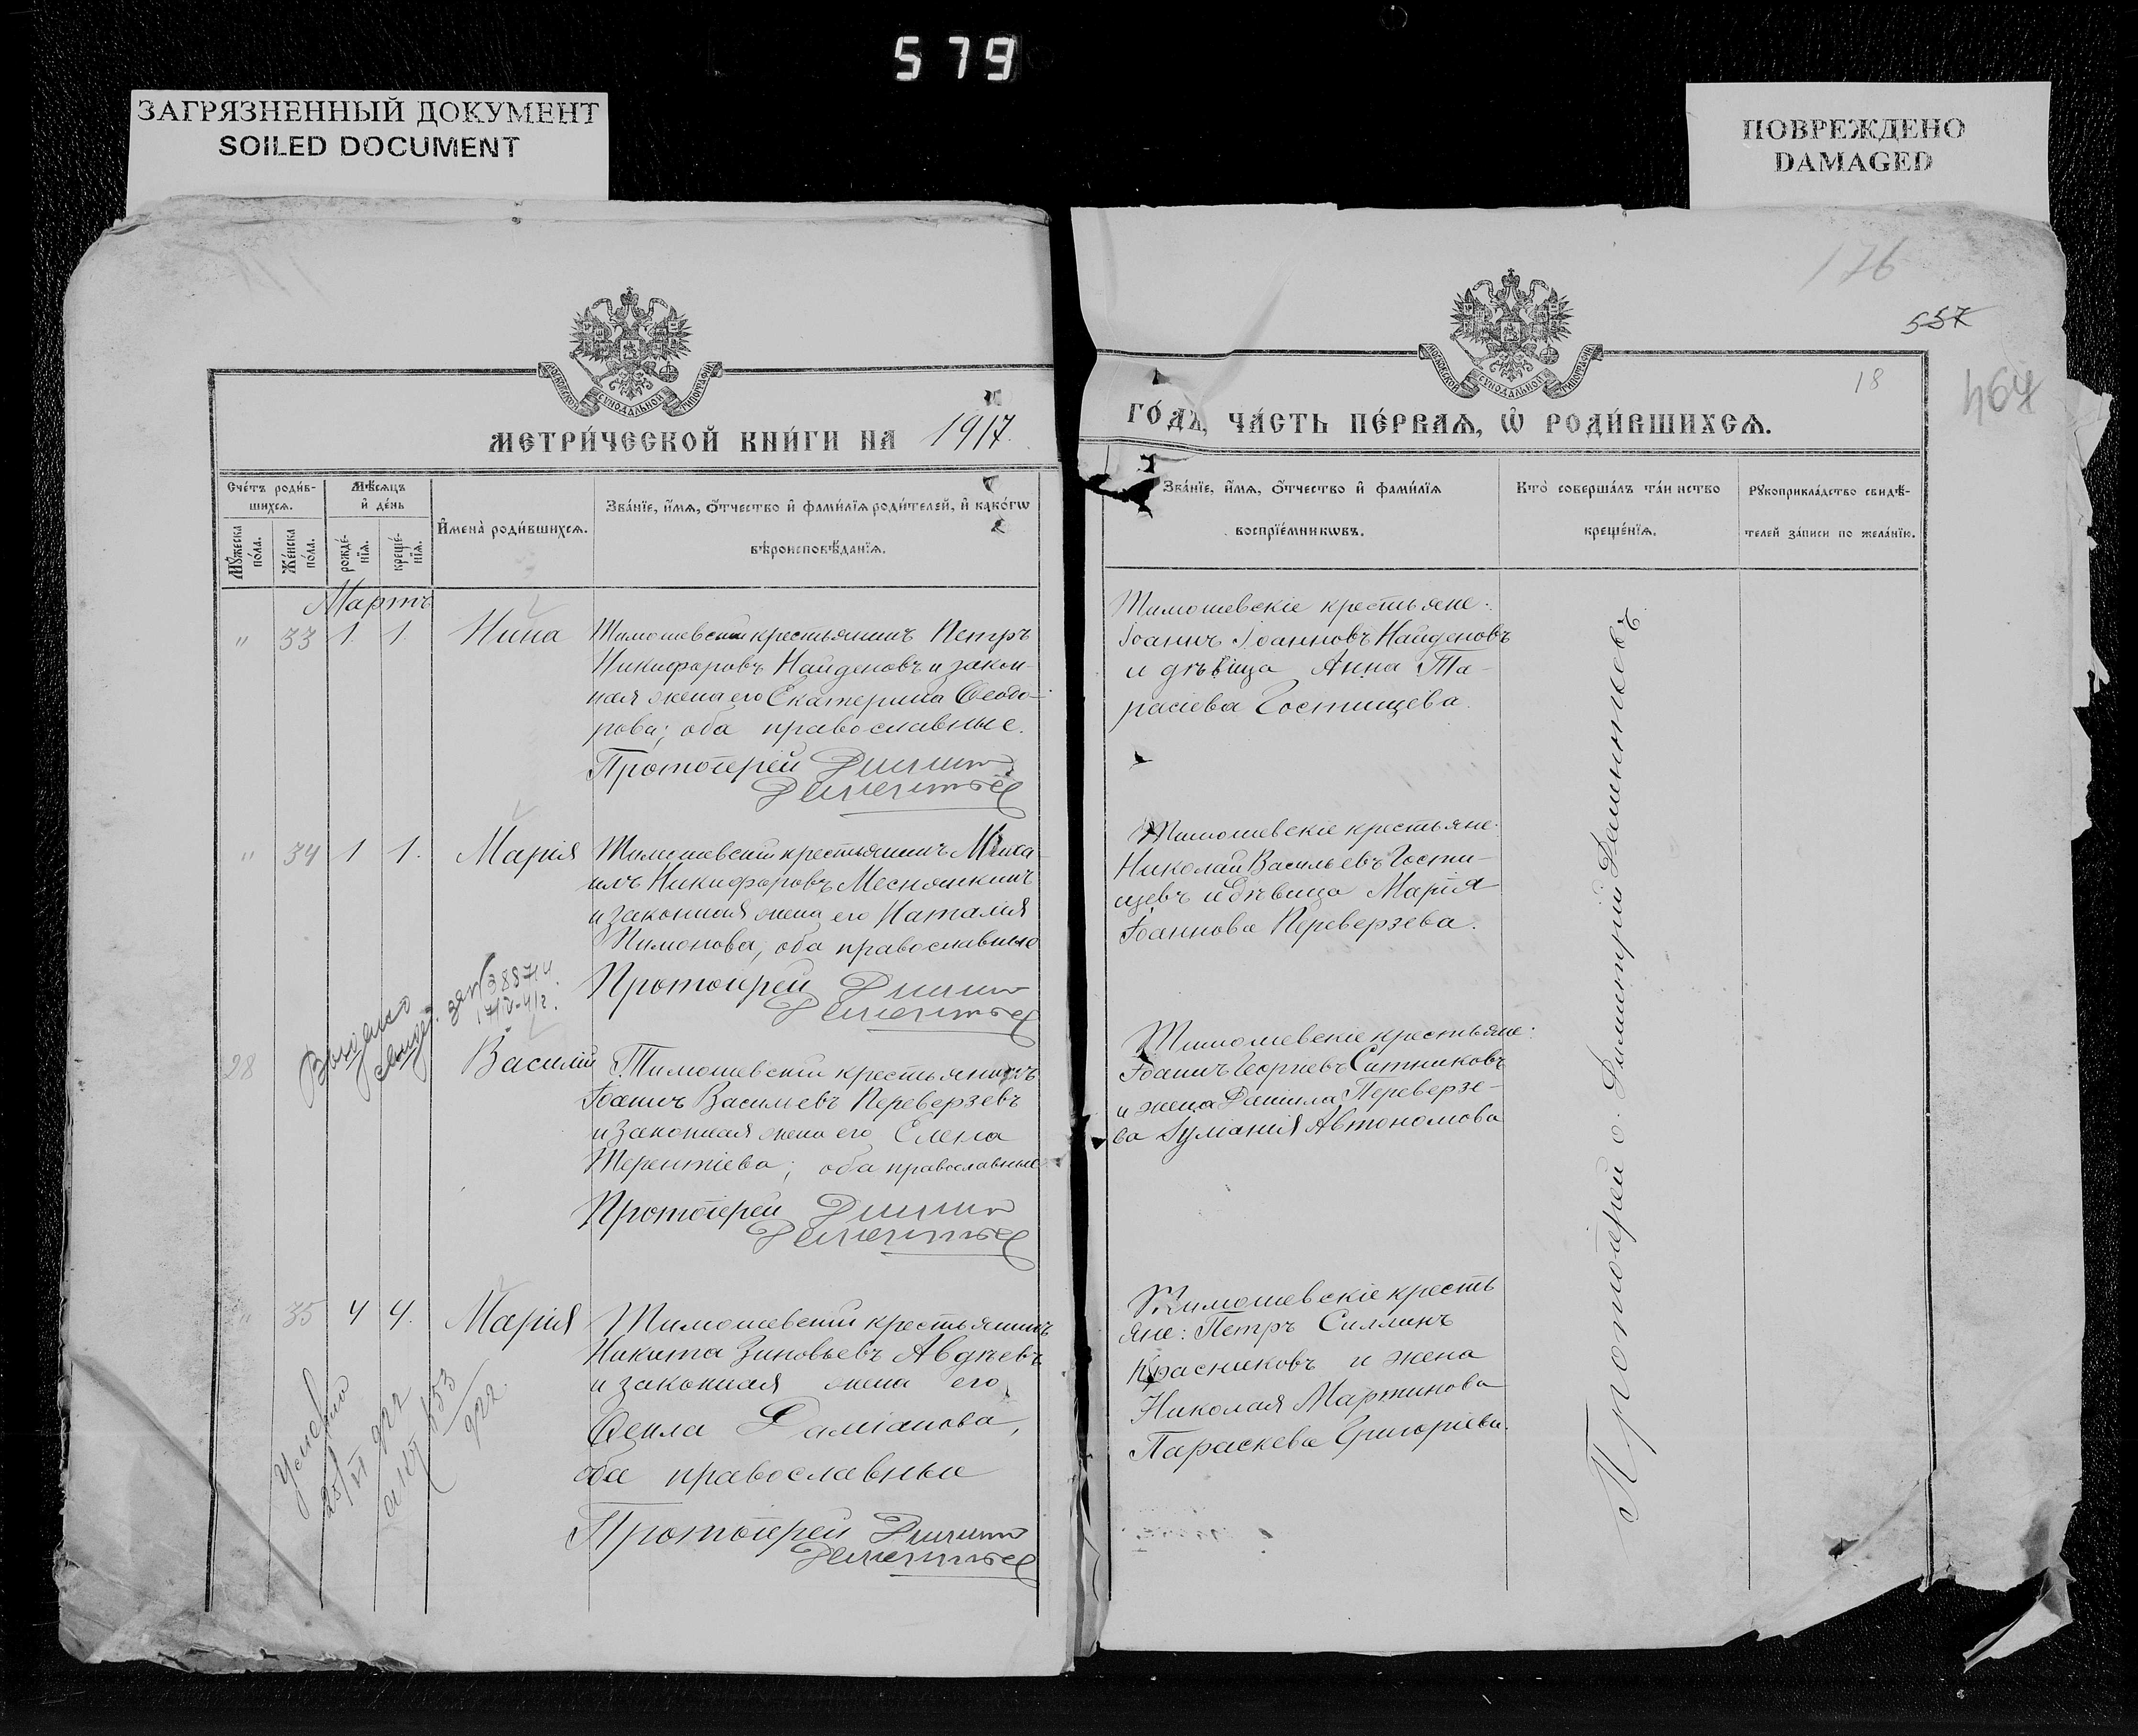 579
ЗАГРЯЗНЕННЫЙ ДОКУМЕНТ
SOILED DOCUMENT
ПОВРЕЖДЕНО
DAMAGED
176
557
18
464
МОСКОВСКОЙ СУНОДАЛЬНОЙ ТИПОГРАФІИ
МОСКОВСКОЙ СУНОДАЛЬНОЙ ТИПОГРАФІИ
МЕТРИ́ЧЕСКОЙ КНИ́ГИ НА 1917.
ГО́ДЪ, ЧА́СТЬ ПЕ́РВАѦ, Ѽ РОДИ́ВШИХСѦ.
Счéтъ роди́в-
шихсѧ.
Мѣ́сѧцъ
и҆ дéнь
Мꙋ́жеска
по́ла.
Же́нска
по́ла.
рождé-
нїѧ.
крещé-
нїѧ.
И҆мена̀ роди́вшихсѧ.
Зва́нїе, и҆́мѧ, ѻ҆́тчество и҆ фами́лїѧ роди́телей, и҆ како́гѡ
вѣроисповѣ́данїѧ.
Зва́нїе, и҆́мѧ, ѻ҆́тчество и҆ фами́лїѧ
воспрїе́мникѡвъ.
Кто̀ соверша́лъ та́инство
крещéнїѧ.
Рꙋкоприкла́дство свидѣ́-
телей за́писи по жела́нїю.
Мартъ
" 33 1. 1. Нина
Тимошевскій крестьянинъ Петръ
Никифоровъ Найденовъ и закон-
ная жена его Екатерина Ѳеодо-
рова; оба православные.
Протоіерей Димит.
Дементьев
Тимошевскіе крестьяне:
Іоаннъ Іоанновъ Найденовъ
и дѣвица Анна Та-
расіева Гостищева.
" 34 1 1. Марія
Тимошевскій крестьянинъ Миха-
илъ Никифоровъ Меснянкинъ
и законная жена его Наталія
Тимонова, оба православные
Протоіерей Димит
Дементьев
Тимошевскіе крестьяне:
Николай Васильевъ Гости-
щевъ и дѣвица Марія
Іоаннова Переверзева.
Выдано
свидет. за №
28 Василій
Тимошевскій крестьянинъ
Іоаннъ Васильевъ Переверзевъ
и законная жена его Елена
Терентіева; оба православные
Протоіерей Димит
Дементьев
Тимошевскіе крестьяне:
Іоаннъ Георгіевъ Ситниковъ
и жена Даніила Переверзе-
ва Іуліанія Автономова
" 35 4 4. Марія
Тимошевскій крестьянинъ
Никита Зиновьевъ Авдѣевъ
и законная жена его
Ѳекла Даміанова,
оба православные
Протоіерей Димит
Дементьев
Тимошевскіе кресть
яне: Петръ Силлинъ
Красниковъ и жена
Николая Мартинова
Параскева Григоріева.
Протоіерей о. Димитрій Дементьевъ.